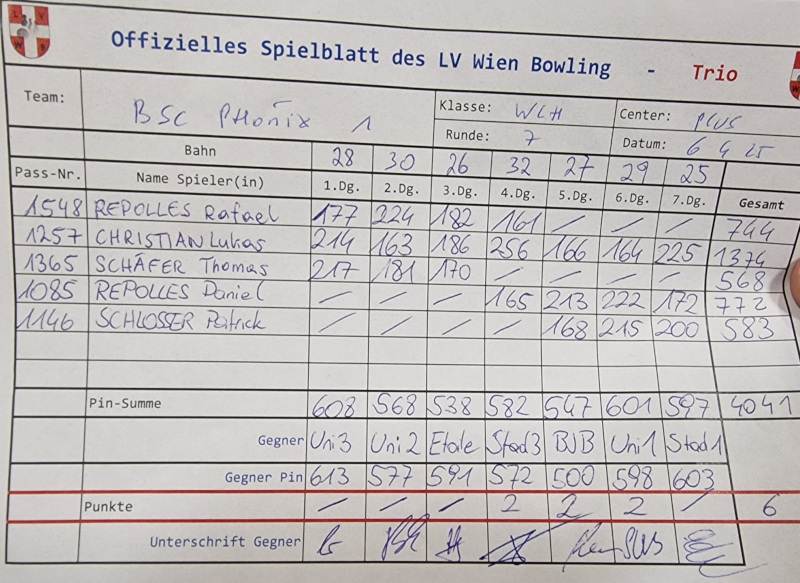 Offizielles Spielblatt des LV Wien Bowling - Trio
Team: BSC PHÖNIX 1 Klasse: WLH Center: PLUS
Runde: 7 Datum: 6 4 25
Bahn 28 30 26 32 27 29 25
Pass-Nr. Name Spieler(in) 1.Dg. 2.Dg. 3.Dg. 4.Dg. 5.Dg. 6.Dg. 7.Dg. Gesamt
1548 REPOLLES Rafael 177 224 182 161 / / / 744
1257 CHRISTIAN Lukas 214 163 186 256 166 164 225 1374
1365 SCHÄFER Thomas 217 181 170 / / / / 568
1085 REPOLLES Daniel / / / 165 213 222 172 772
1146 SCHLOSSER Patrick / / / / 168 215 200 583
Pin-Summe 608 568 538 582 547 601 597 4041
Gegner Uni3 Uni2 Etale Stad3 BJB Uni1 Stad1
Gegner Pin 613 577 591 572 500 598 603
Punkte / / / 2 2 2 / 6
Unterschrift Gegner